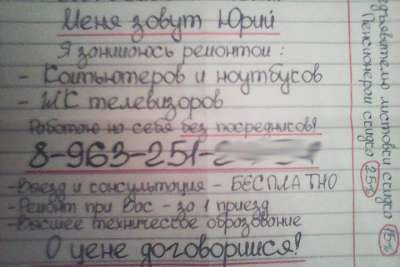 Меня зовут Юрий
Я занимаюсь ремонтом :
- Компьютеров и ноутбуков
- ЖК телевизоров
Работаю на себя без посредников!
8-963-251-
- Выезд и консультация - БЕСПЛАТНО
- Ремонт при Вас - за 1 приезд
- Высшее техническое образование
О цене договоримся!
Предъявителю листовки скидка 15%
Пенсионерам скидка 25%